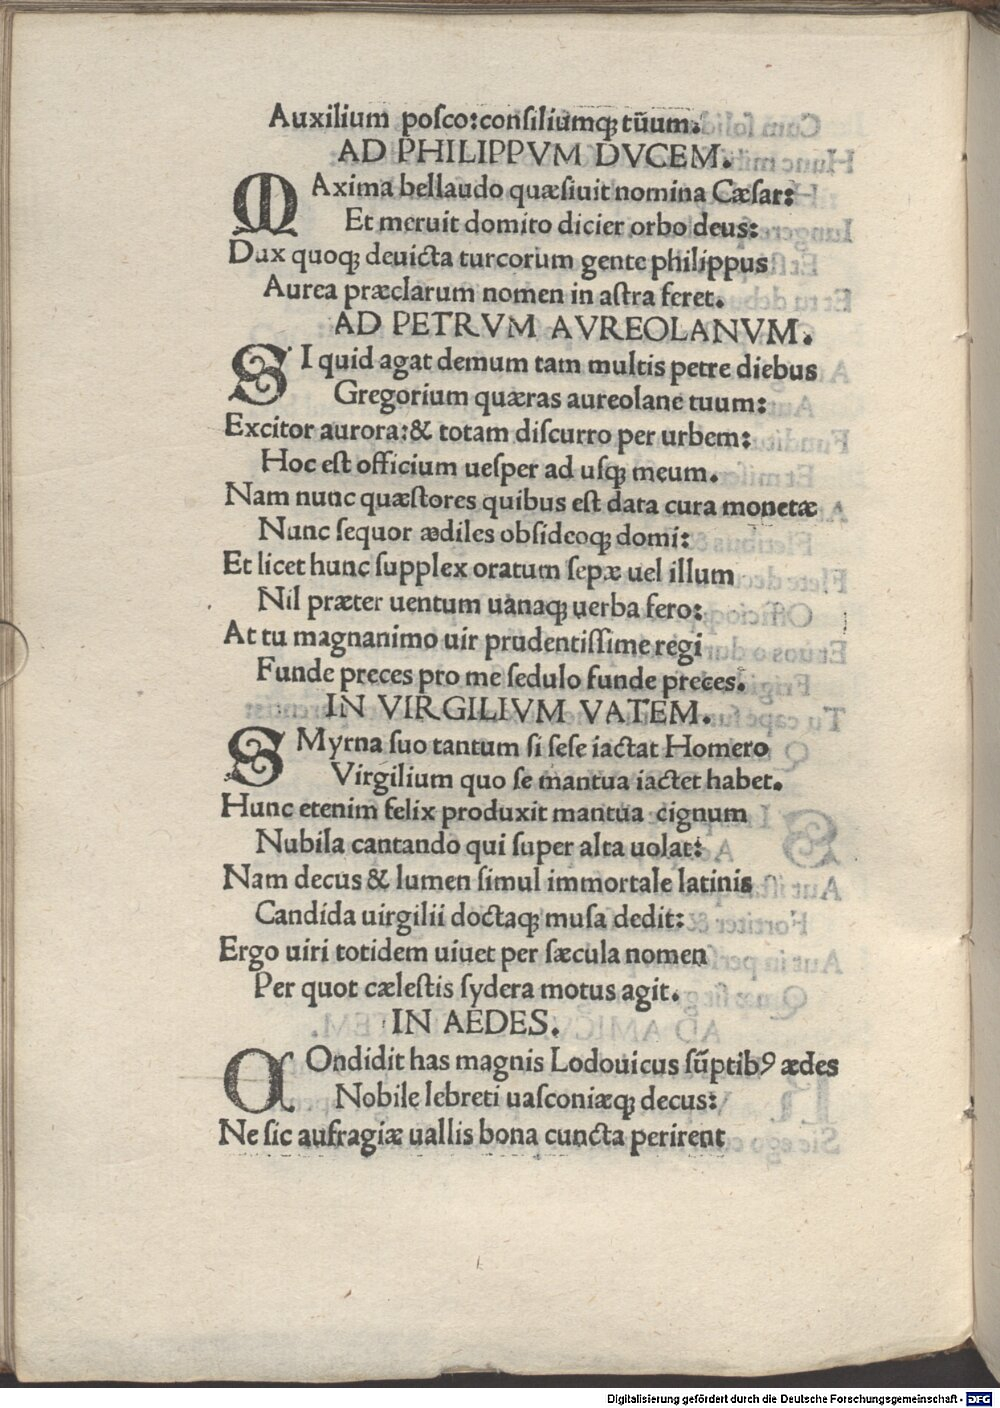 Auxilium poſco:conſiliumq; tūum.
AD PHILIPPVM DVCEM.
MAxima bellaudo quæſiuit nomina Cæſar:
Et meruit domito dicier orbo deus:
Dux quoq; deuicta turcorum gente philippus
Aurea præclarum nomen in aſtra feret.
AD PETRVM AVREOLANVM.
SI quid agat demum tam multis petre diebus
Gregorium quæras aureolane tuum:
Excitor aurora:& totam diſcurro per urbem:
Hoc eſt officium ueſper ad uſq; meum.
Nam nunc quæſtores quibus eſt data cura monetæ
Nunc ſequor ædiles obſideoq; domi:
Et licet hunc ſupplex oratum ſepæ uel illum
Nil præter uentum uanaq; uerba fero:
At tu magnanimo uir prudentiſſime regi
Funde preces pro me ſedulo funde preces.
IN VIRGILIVM VATEM.
SMyrna ſuo tantum ſi ſeſe iactat Homero
Virgilium quo ſe mantua iactet habet.
Hunc etenim felix produxit mantua cignum
Nubila cantando qui ſuper alta uolat:
Nam decus & lumen ſimul immortale latinis
Candida uirgilii doctaq; muſa dedit:
Ergo uiri totidem uiuet per ſæcula nomen
Per quot cæleſtis ſydera motus agit.
IN AEDES.
Ondidit has magnis Lodouicus ſūptibꝰ ædes
Nobile lebreti uaſconiæq; decus:
Ne ſic aufragiæ uallis bona cuncta perirent
Digitalisierung gefördert durch die Deutsche Forschungsgemeinschaft - DFG